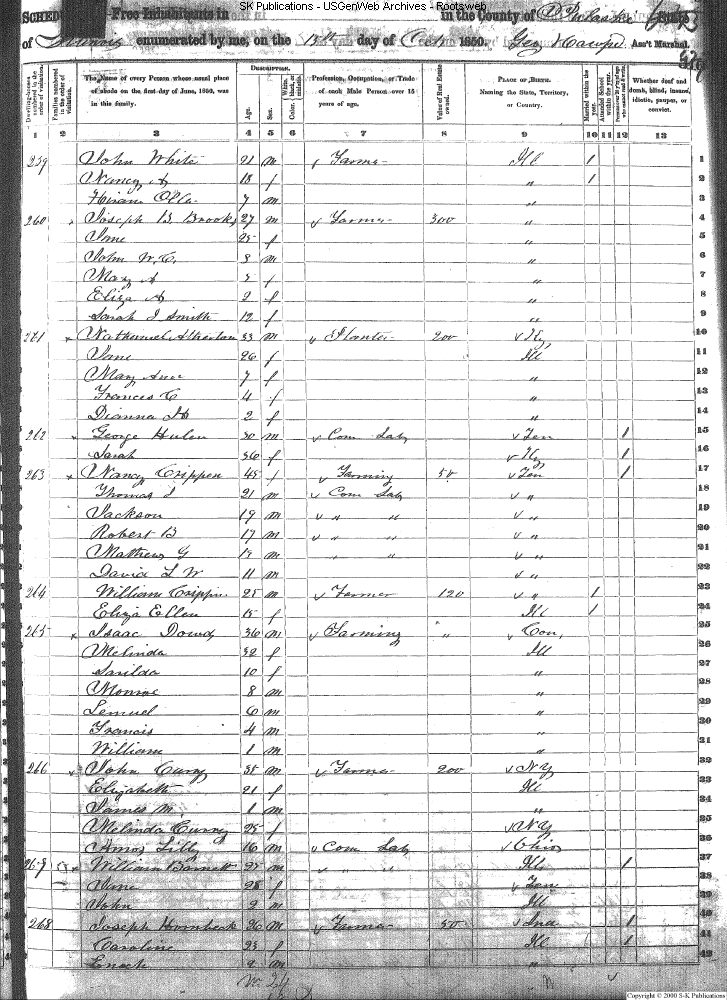 SK Publications - USGenWeb Archives - Rootsweb
SCHED Free Inhabitants in in the County of Pulaski State
of Illinois enumerated by me, on the 15th day of Oct 1850. Geo Ass't Marshal.
Dwelling-houses numbered in the order of visitation. Families numbered in the order of visitation. The Name of every Person whose usual place of abode on the first day of June, 1850, was in this family. DESCRIPTION. Age. Sex. Color, White, black, or mulatto. Profession, Occupation, or Trade of each Male Person over 15 years of age. Value of Real Estate owned. PLACE OF BIRTH. Naming the State, Territory, or Country. Married within the year. Attended School within the year. Persons over 20 y'rs of age who cannot read & write. Whether deaf and dumb, blind, insane, idiotic, pauper, or convict.
1 2 3 4 5 6 7 8 9 10 11 12 13
259 John White 21 m Farmer Ill 1 1
Nancy A 18 f " 1 2
Hiram 7 m " 3
260 Joseph B. Brooks 27 m Farmer 300 " 4
Jane 25 f " 5
John W. C. 8 m " 6
Mary A f " 7
Eliza A 2 f " 8
Sarah J Smith 12 f " 9
271 Nathaniel Atherton 33 m Planter 200 Ky 10
Jane 26 f Ill 11
Mary Ann 7 f " 12
Frances C 4 f " 13
Dianna H 2 f " 14
262 George Hulen 30 m Com Lab Ten 1 15
Sarah 36 f Ky 1 16
263 Nancy Crippen 45 f Farming 50 Ten 1 17
Thomas J 21 m Com Lab " 18
Jackson 19 m " " " 19
Robert B 17 m " " " 20
Mathew G m " " " 21
David L W 11 m " 22
264 William Crippin 25 m Farmer 120 " 1 23
Eliza Ellen 15 f Ill 1 24
265 Isaac Dowd 36 m Farming " Con, 25
Melinda 32 f Ill 26
Sarilda 10 f " 27
Monroe 8 m " 28
Lemuel 6 m " 29
Francis 4 m " 30
William 1 m " 31
266 John Curry 35 m Farmer 200 NY 32
Elizabeth 21 f Ill 33
James M. 1 m " 34
Melinda Currey 25 f NY 35
Amos Lilly 16 m Com Lab Ohio 36
267 William Barnett 25 m " " Ill 1 37
Jane 28 f Ten 38
John 2 m Ill 39
268 Joseph Hornbeck 26 m Farmer 50 Ind 1 40
Caroline 23 f Ill 1 41
Enoch 2 m " 42
Copyright © 2000 S-K Publications